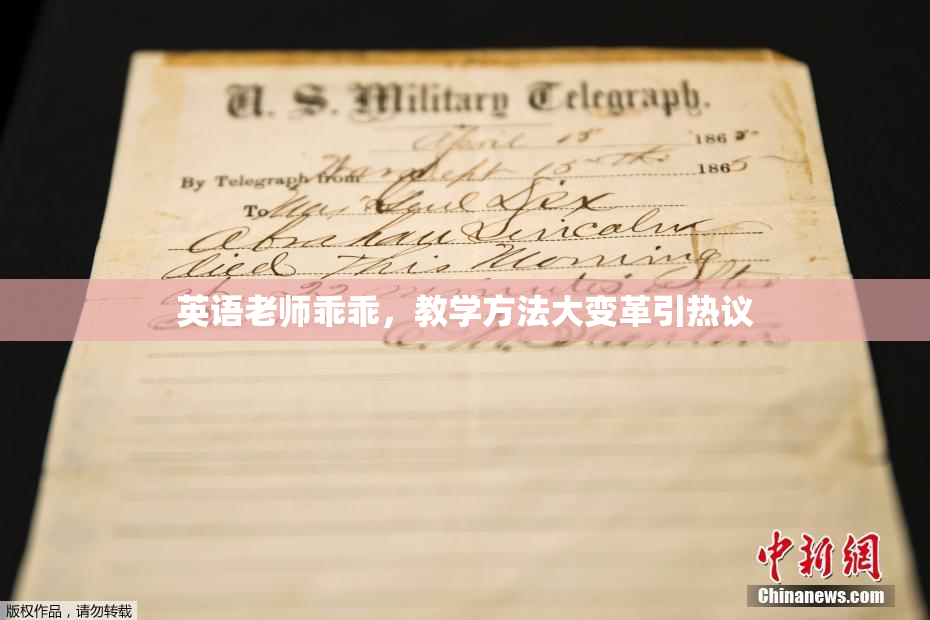 U. S. Military Telegraph.
April 15 1865
By Telegraph from War Dept 15th 1865
To Maj Genl Dix
Abraham Lincoln
died This Morning
22 minutes after
英语老师乖乖，教学方法大变革引热议
中新网
Chinanews.com
版权作品，请勿转载